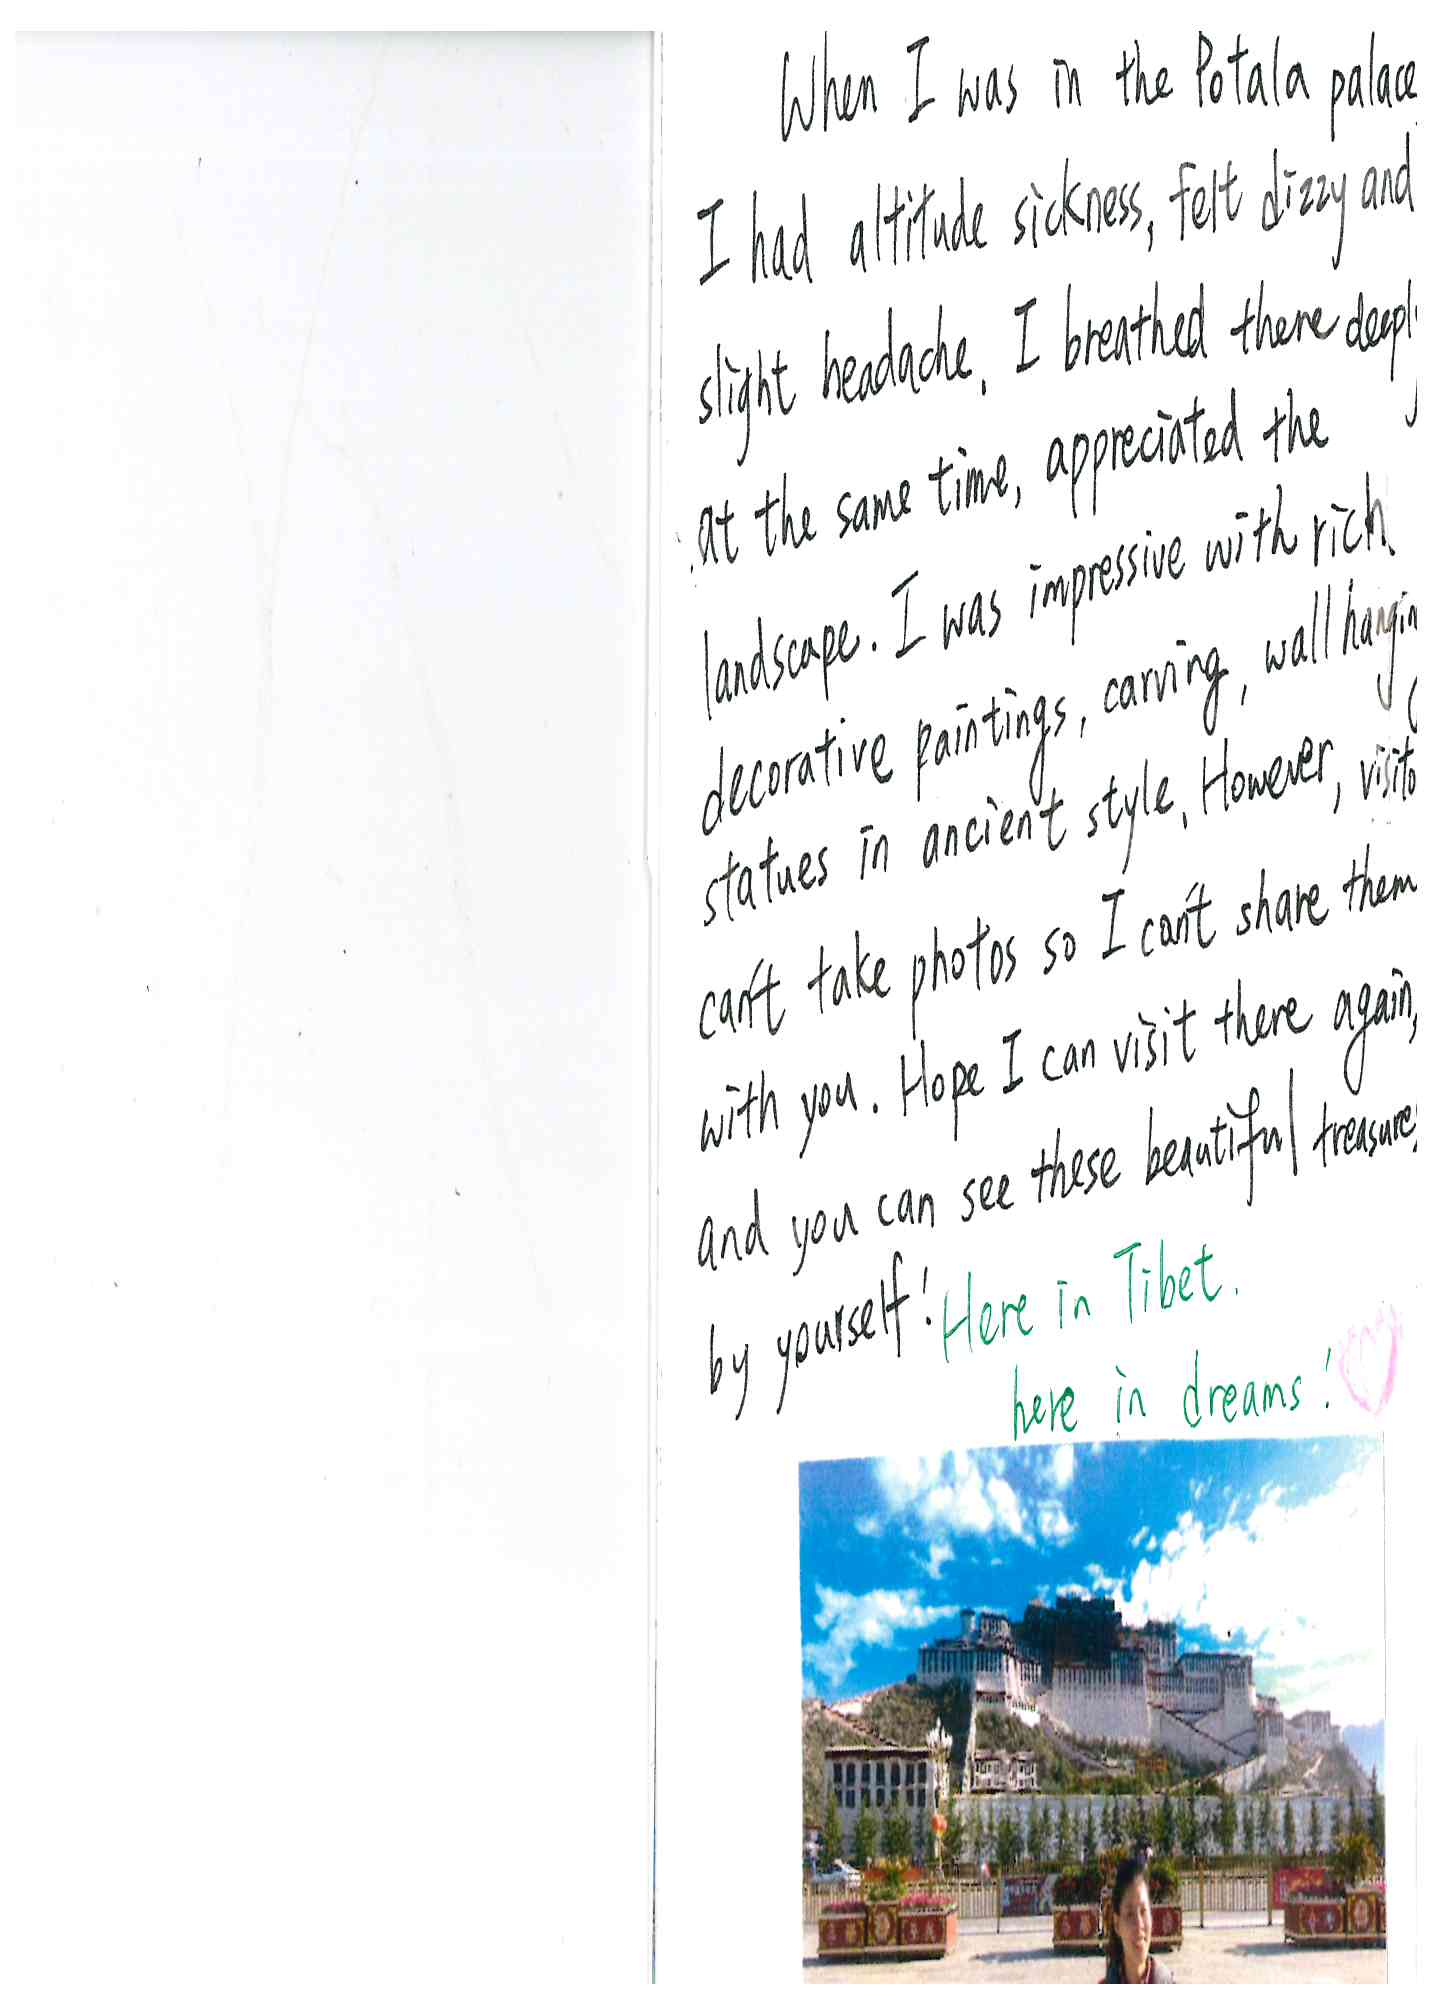 When I was in the Potala palace
I had altitude sickness, felt dizzy and
slight headache. I breathed there deeply
at the same time, appreciated the
landscape. I was impressive with rich
decorative paintings, carving, wall hangin
statues in ancient style. However, visito
can't take photos so I can't share them
with you. Hope I can visit there again,
and you can see these beautiful treasures
by yourself! Here in Tibet.
here in dreams!